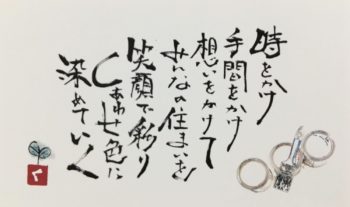 時をかけ
手間をかけ
想いをかけて
みんなの住まいを
笑顔で彩り
しあわせ色に
染めていく
く